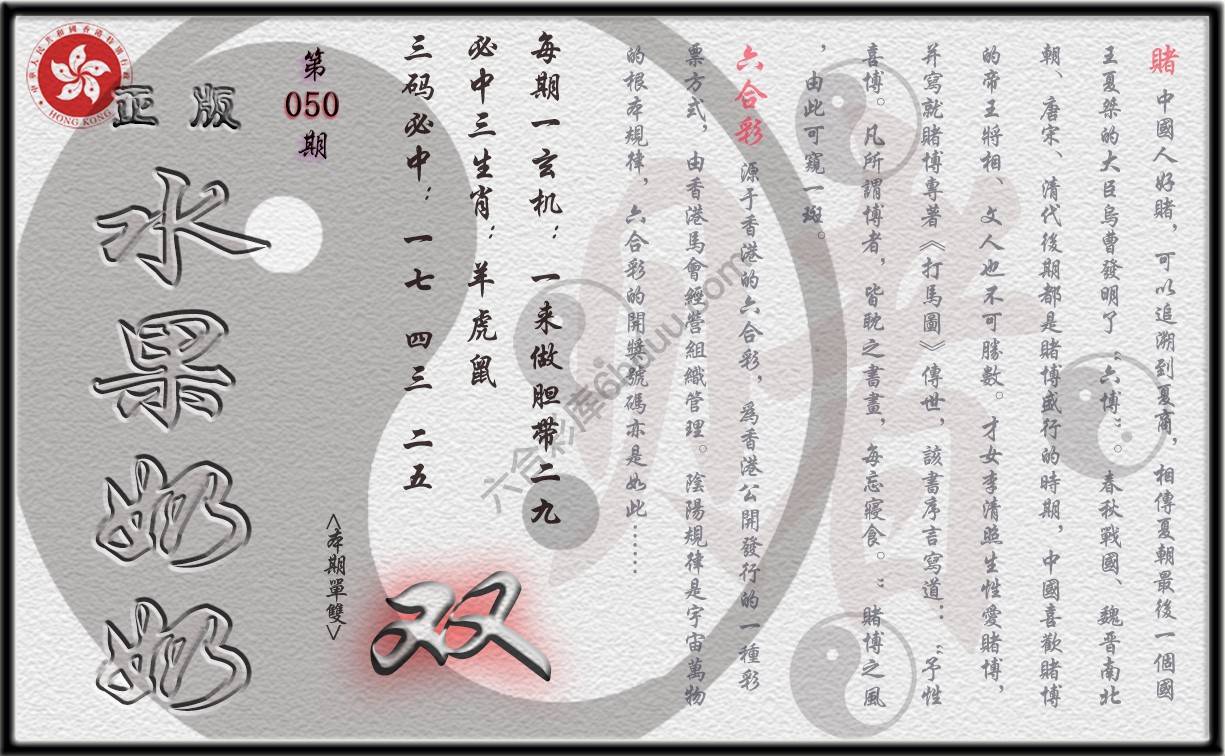 賭 中國人好賭，可以追溯到夏商，相傳夏朝最後一個國
王夏桀的大臣烏曹發明了“六博”。春秋戰國、魏晋南北
朝、唐宋、清代後期都是賭博盛行的時期，中國喜歡賭博
的帝王將相、文人也不可勝數。才女李清照生性愛賭博，
并寫就賭博專著《打馬圖》傳世，該書序言寫道：“予性
喜博。凡所謂博者，皆耽之書畫，每忘寢食。”賭博之風
，由此可窺一斑。
六合彩 源于香港的六合彩，爲香港公開發行的一種彩
票方式，由香港馬會經營組織管理。陰陽規律是宇宙萬物
的根本規律，六合彩的開獎號碼亦是如此……
每期一玄机：一来做胆带二九
必中三生肖：羊虎鼠
三码必中：一七 四三 二五
双
<本期單雙>
第
050
期
正版
水果奶奶
HONG KONG
六合彩库6hduu.com